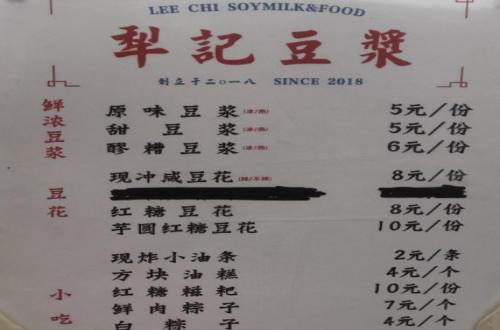 LEE CHI SOYMILK&FOOD
犁記豆漿
创立于二〇一八 SINCE 2018
鲜浓豆浆
原味豆浆(冰/热) 5元/份
甜豆浆(冰/热) 5元/份
醪糟豆浆(冰/热) 6元/份
豆花
现冲咸豆花(辣/不辣) 8元/份
红糖豆花 8元/份
芋圆红糖豆花 10元/份
小吃
现炸小油条 2元/条
方块油糕 4元/个
红糖糍粑 10元/份
鲜肉粽子 7元/个
白粽子 4元/个